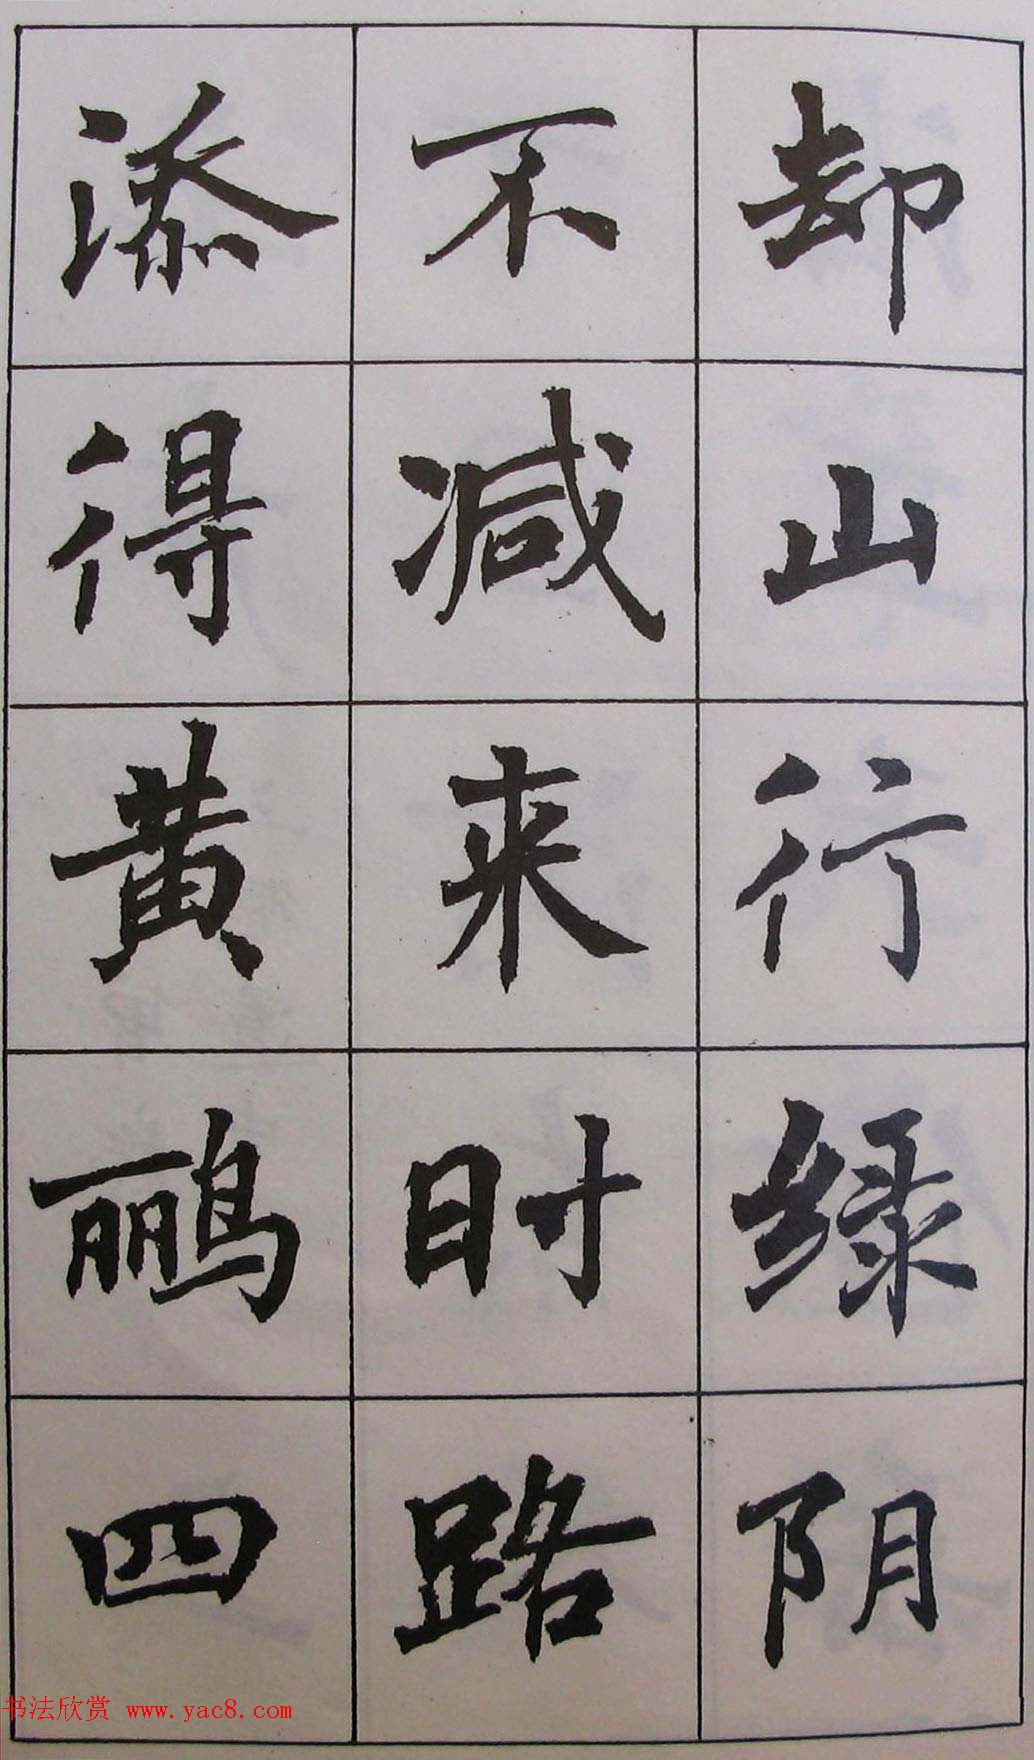 却山行绿阴
不减来时路
添得黄鹂四
书法欣赏 www.yac8.com